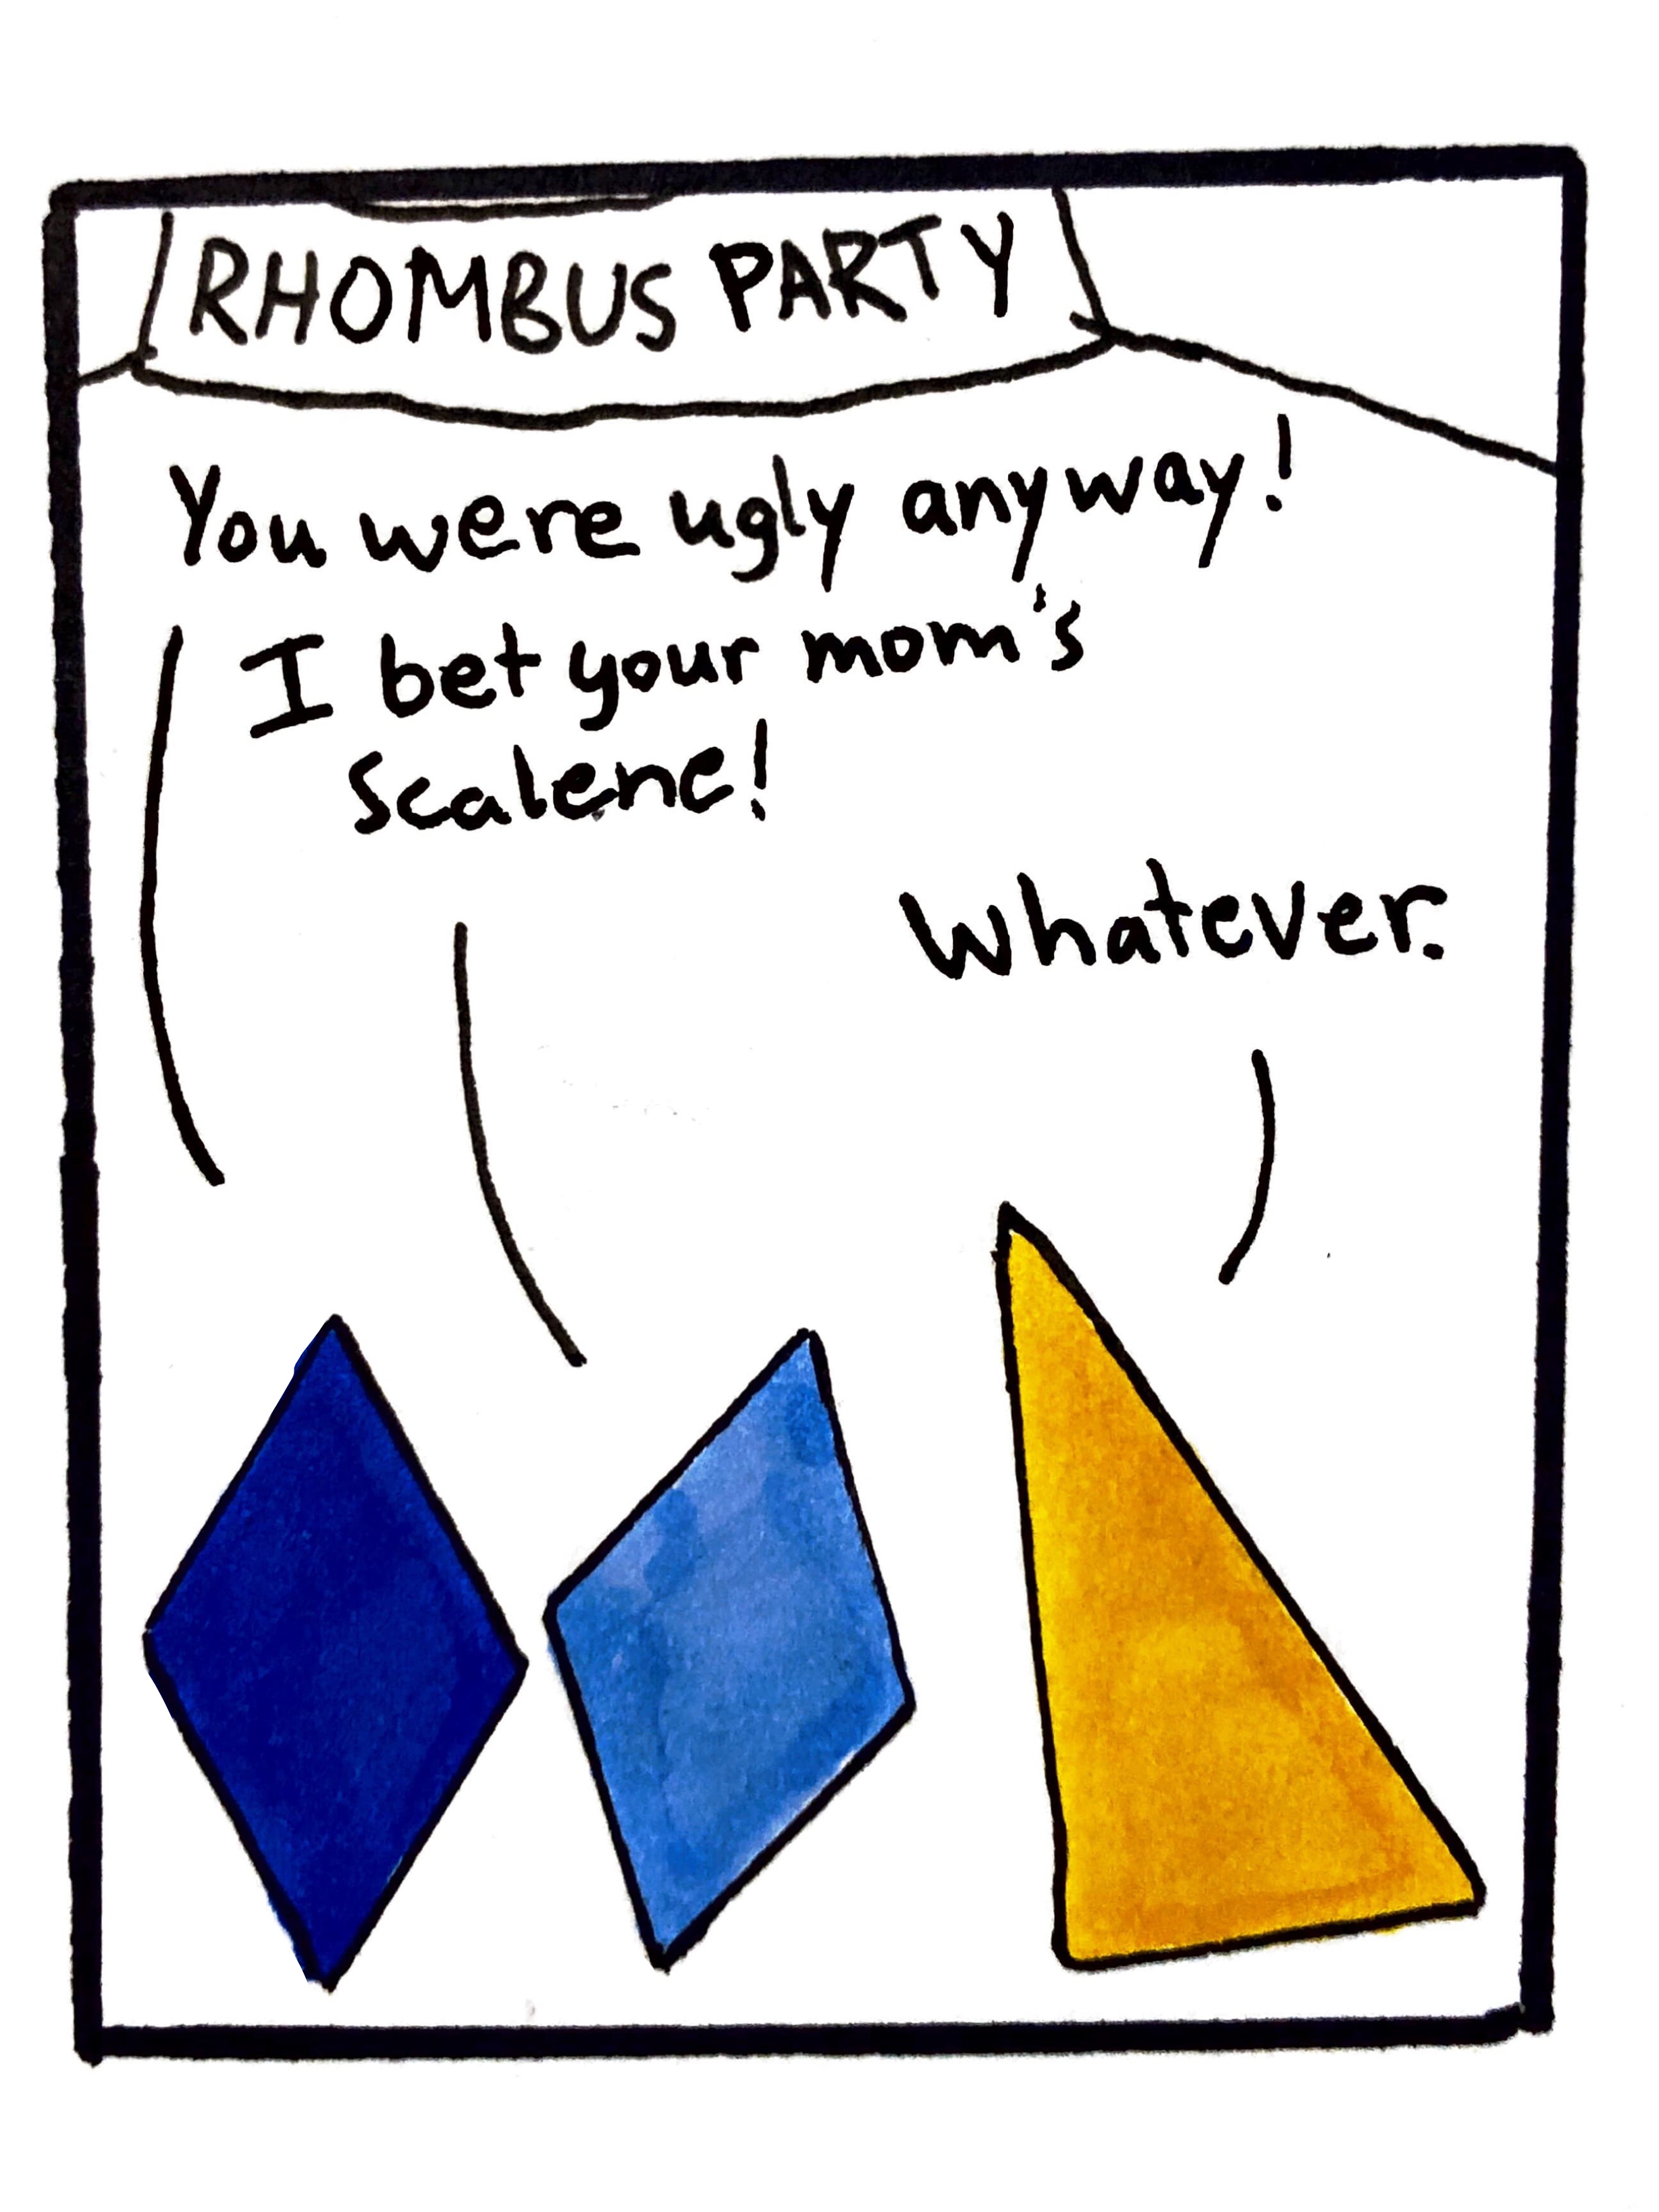 RHOMBUS PARTY
You were ugly anyway!
I bet your mom's
scalene!
Whatever.